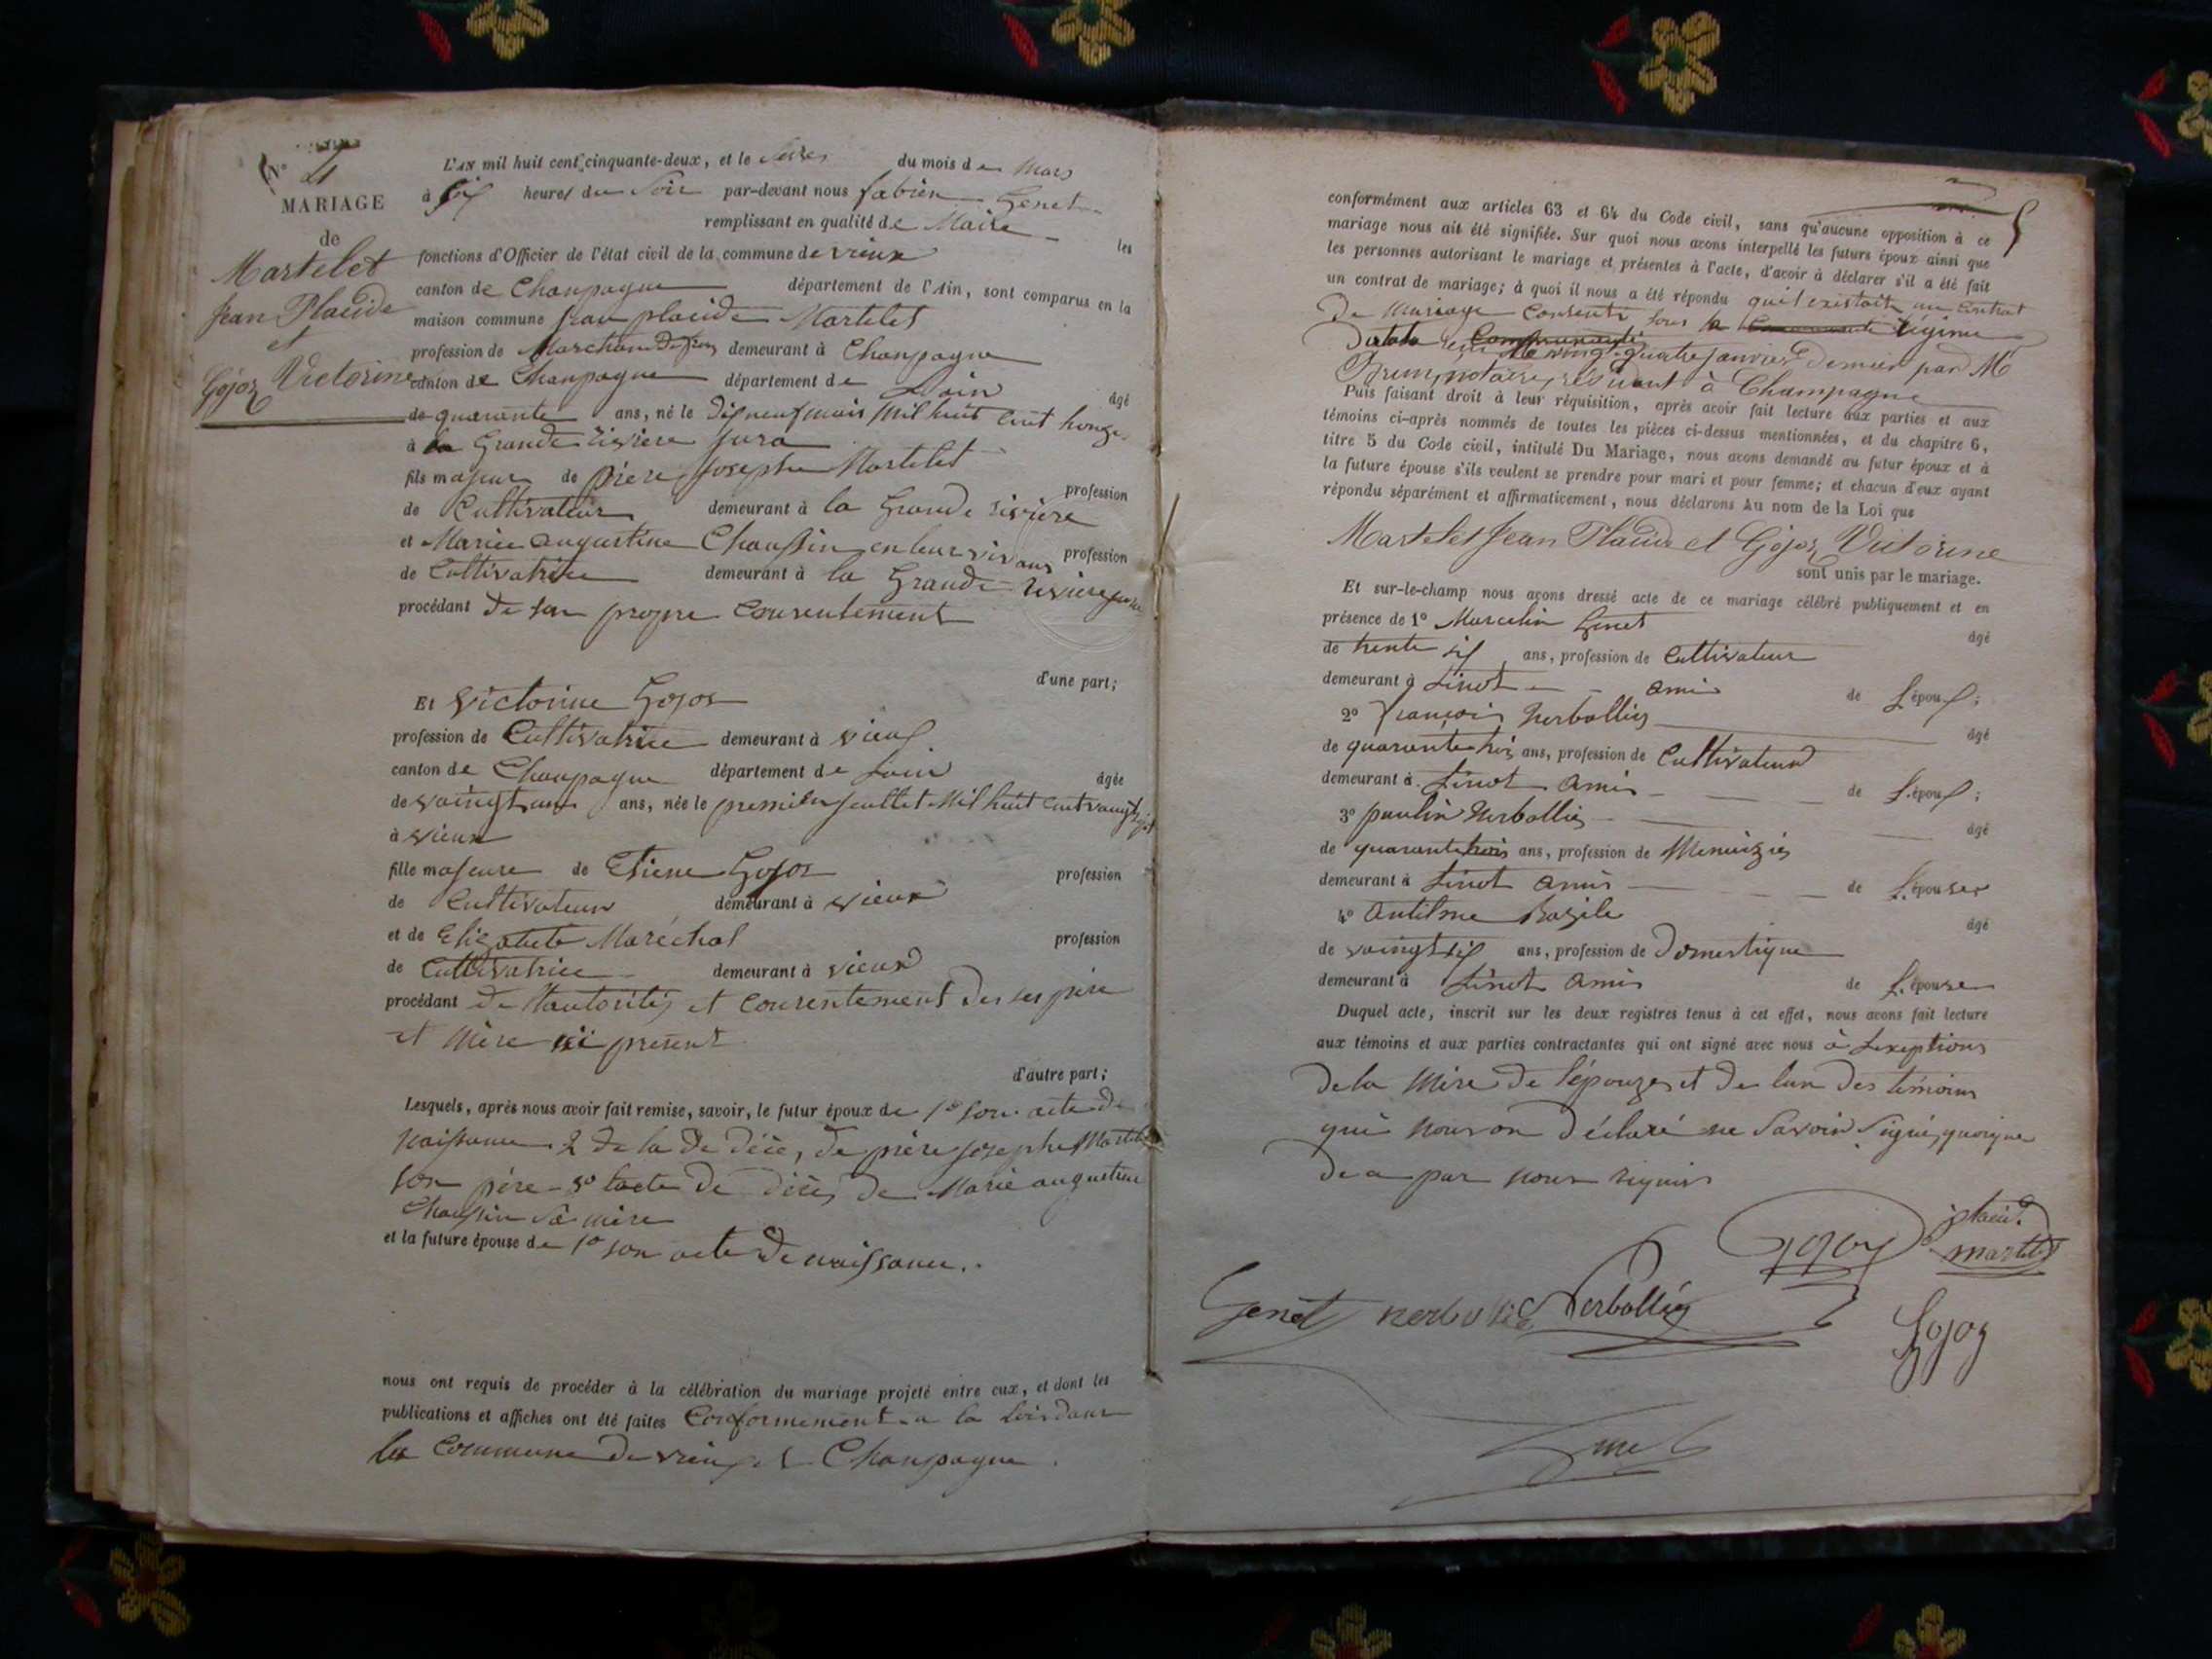 N° 4
MARIAGE
de
Martelet
Jean Placide
et
Gojoz Victorine
L'AN mil huit cent cinquante-deux, et le Seize du mois de Mars
à Six heures du Soir par-devant nous fabien Genet
remplissant en qualité de Maire les
fonctions d'Officier de l'état civil de la commune de vieux
canton de Chanpagne département de l'Ain, sont comparus en la
maison commune Jean placide Martelet
profession de Marchand demeurant à Chanpagne
canton de Chanpagne département de Lain âgé
de quarante ans, né le dixneuf mil huit cent honze
à la Grande rivière Jura
fils majeur de pière Joseph Martelet profession
de Cultivateur demeurant à la Grande rivière
et Marie augustine Chaussin en leur vivans profession
de Cultivatrice demeurant à la Grande rivière Jura
procédant de son propre Consentement
d'une part;
Et Victorine Gojoz
profession de Cultivatrice demeurant à vieux
canton de Chanpagne département de Lain âgée
de ans, née le premier Juillet Mil huit cent
à vieux
fille majeure de Etiene Gojoz profession
de Cultivateur demeurant à vieux
et de Elizabete Maréchal profession
de Cultivatrice demeurant à vieux
procédant de Lautorités et Consentement des ses père
et Mère ici présent
d'autre part;
Lesquels, après nous avoir fait remise, savoir, le futur époux de 1° son acte de
naissance 2 de la de décè, de pière Josephe Martelet
son père 3° lacte de décès de Marie augustine
Chaussin sa mère
et la future épouse de 1° son acte de naissance.
nous ont requis de procéder à la célébration du mariage projeté entre eux, et dont les
publications et affiches ont été faites Conformément a la Loi dans
la Commune de vieux et Chanpagne.
5
conformément aux articles 63 et 64 du Code civil, sans qu'aucune opposition à ce
mariage nous ait été signifiée. Sur quoi nous avons interpellé les futurs époux ainsi que
les personnes autorisant le mariage et présentes à l'acte, d'avoir à déclarer s'il a été fait
un contrat de mariage; à quoi il nous a été répondu quil existoit un Contrat
De Mariage Consenti sous le Régime
Dotale le vingt quatre janvier dernier par Me
notaire, résidant à Champagne
Puis faisant droit à leur réquisition, après avoir fait lecture aux parties et aux
témoins ci-après nommés de toutes les pièces ci-dessus mentionnées, et du chapitre 6,
titre 5 du Code civil, intitulé Du Mariage, nous avons demandé au futur époux et à
la future épouse s'ils veulent se prendre pour mari et pour femme; et chacun d'eux ayant
répondu séparément et affirmativement, nous déclarons Au nom de la Loi que
Martelet Jean Placide et Gojoz Victorine
sont unis par le mariage.
Et sur-le-champ nous avons dressé acte de ce mariage célébré publiquement et en
présence de 1° Marcelin Genet âgé
de trente six ans, profession de Cultivateur
demeurant à Linot ami de L'époux;
2° François Nerbollier âgé
de quarante trois ans, profession de Cultivateur
demeurant à Linot Amis de L'époux;
3° paulin Nerbollier âgé
de quarante trois ans, profession de Menuizier
demeurant à Linot amis de L'épouse
4° Antilme Bazile âgé
de vaingt six ans, profession de Domestique
demeurant à Linot amis de L'épouse
Duquel acte, inscrit sur les deux registres tenus à cet effet, nous avons fait lecture
aux témoins et aux parties contractantes qui ont signé avec nous à Lexeptions
de la Mère de l'épouze et de lun des témoins
qui nous on déclaré ne Savoir Signé, quoique
de a par nous requis
Gojoz placide
martelet
Genet nerbollier Nerbollier
Gojoz
Genet